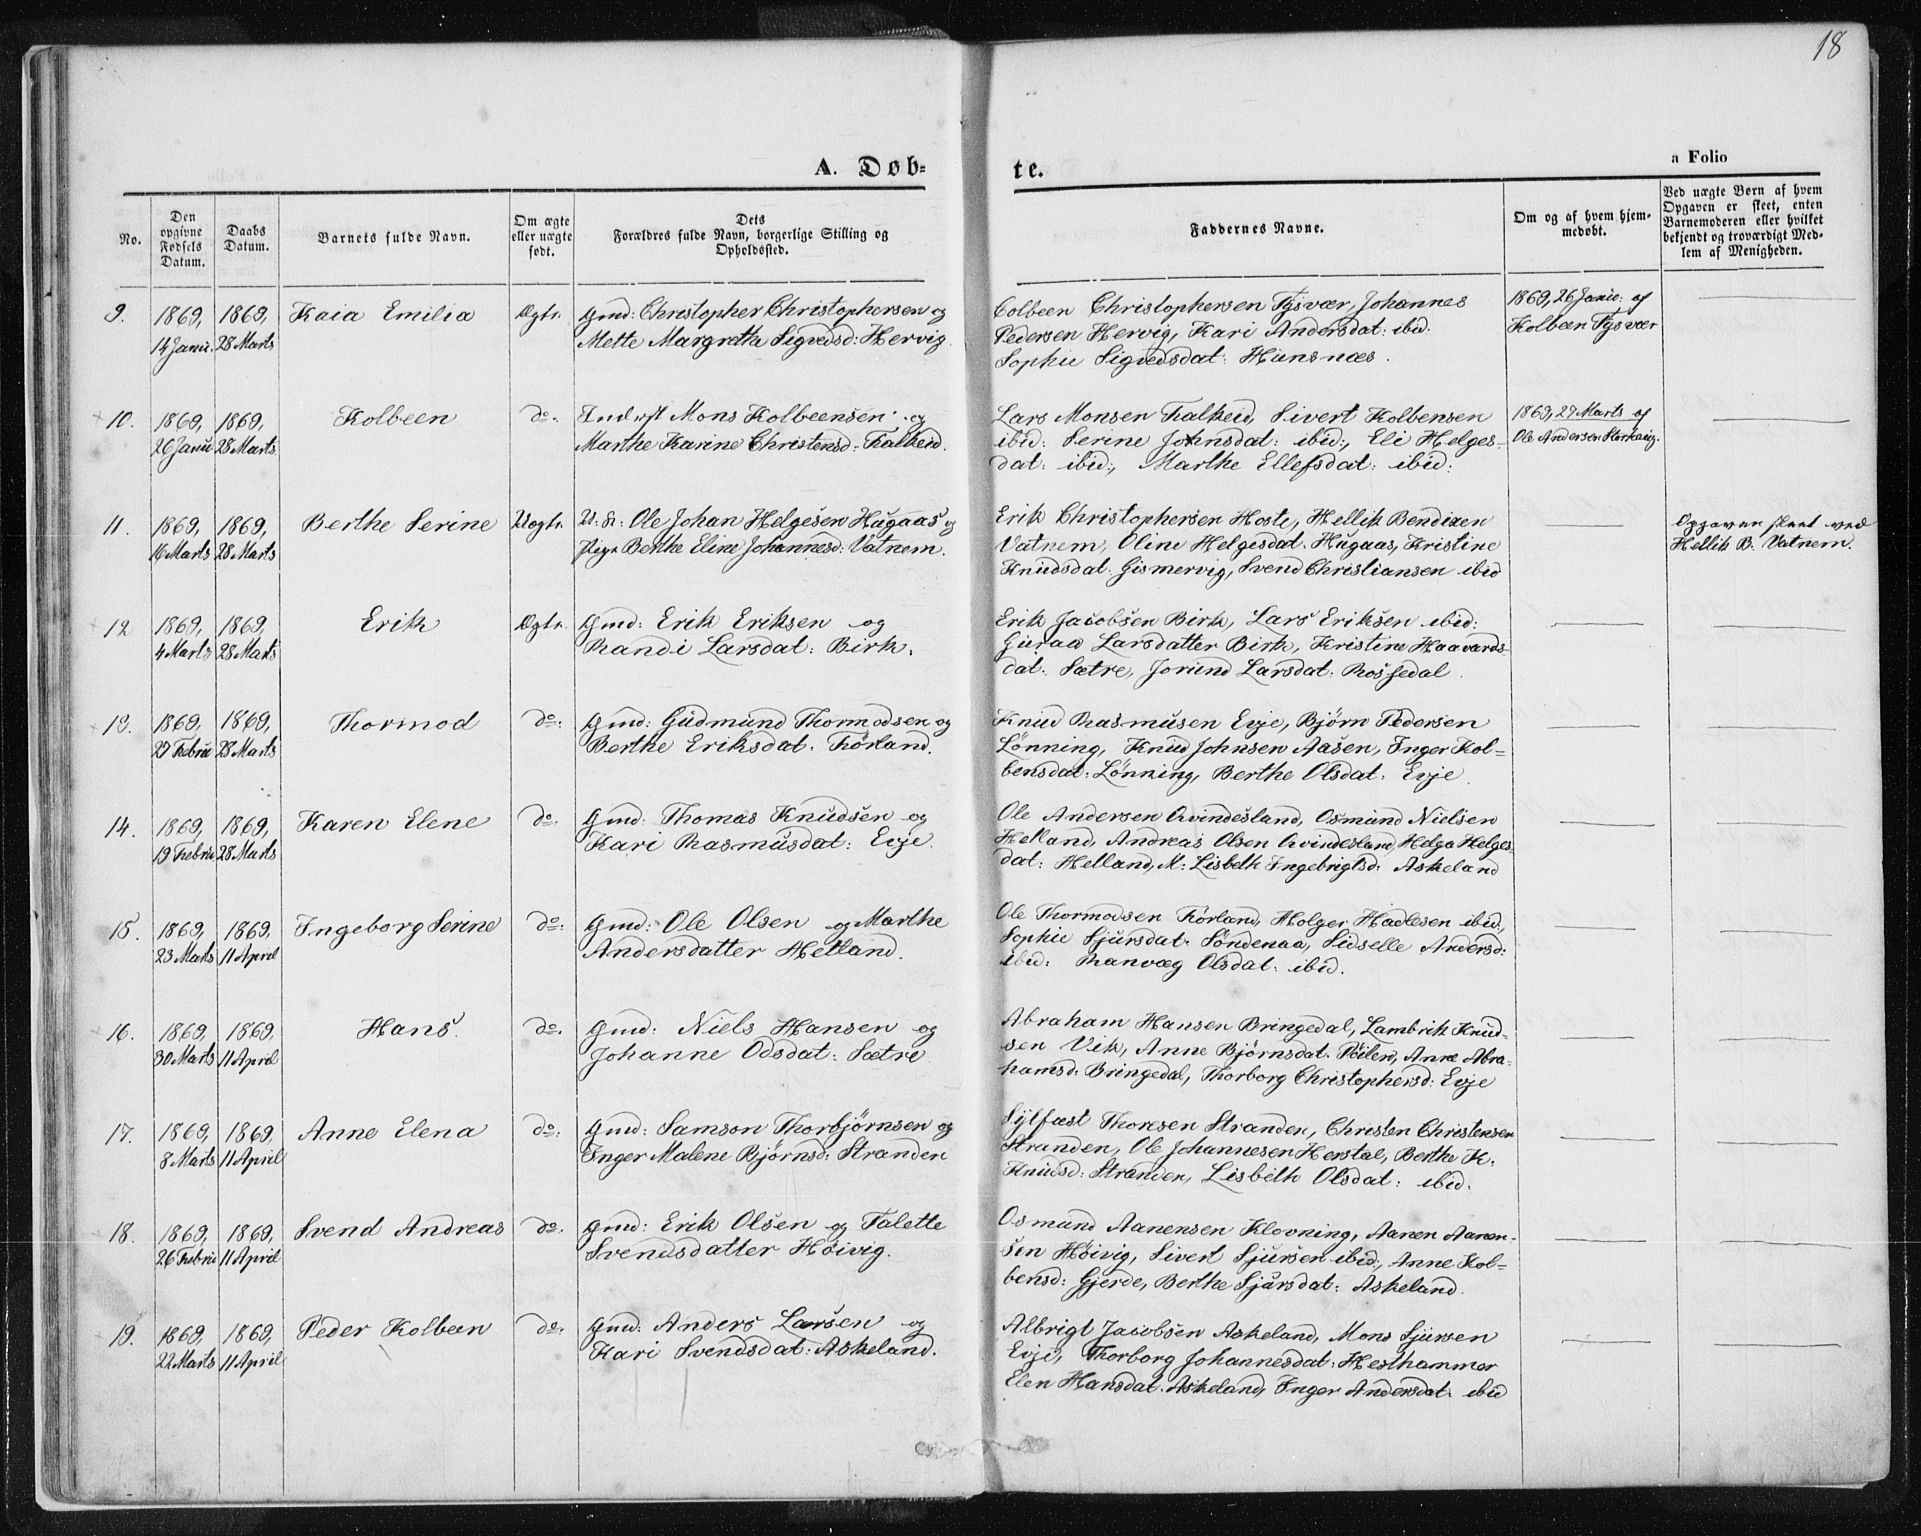 18
A. Døb-
te.
a Folio
No.
Den opgivne Fødsels Datum.
Daabs Datum.
Barnets fulde Navn.
Om ægte eller uægte født.
Dets Forældres fulde Navn, borgerlige Stilling og Opholdssted.
Faddernes Navne.
Om og af hvem hjem-
medøbt.
Ved uægte Børn af hvem
Opgaven er skeet, enten
Barnemoderen eller hvilket
bekjendt og troværdigt Med-
lem af Menigheden.
9. 1869, 1869, Kaia Emilia Ægte. Gmd: Christopher Christophersen og
14 Janu. 28 Marts Mette Margrethe Sigvedsd: Hervig
Colbeen Christophersen Tysvær, Johannes
Pedersen Hervig, Kari Andersdat: ibid:
Sophie Sigvedsdat: Hünsnæs.
1869, 26 Janu: af
Kolbeen Tysvær
10. 1869, 1869, Kolbeen do. Inderst Mons Kolbeensen og
26 Janu 28 Marts Marthe Karine Christensd: Falkeid.
Lars Monsen Falkeid, Sivert Kolbensen
ibid: Serine Johnsdat: ibid:, Eli Helges-
dat: ibid:, Marthe Ellefsdat: ibid:
1869, 27 Marts af
Ole Andersen
11. 1869, 1869, Berthe Serine Uegte. U. K: Ole Johan Helgesen Hügaas og
16 Marts 28 Marts Pige Berthe Eline Johannesd: Vatnem.
Erik Christophersen Hoste, Hellik Bendixen
Vatnem, Oline Helgesdat: Hügaas, Kristine
Knüdsdat: Gismervig, Svend Christiansen ibid
Opgaven skeet ved
Hellik B. Vatnem.
12 1869, 1869, Erik Ægte. Gmd: Erik Eriksen og
4 Marts 28 Marts Randi Larsdat: Birk.
Erik Jacobsen Birk, Lars Eriksen ibid:
Guraa Larsdatter Birk, Kristine Haavards-
dat: Sætre, Joründ Larsdat: Rossedal.
13. 1869, 1869, Thormod do: Gmd: Güdmünd Thormodsen og
27 Febru 28 Marts Berthe Eriksdat: Førland.
Knüd Rasmüsen Evje, Bjørn Pedersen
Lønning, Knüd Johnsen Aasen, Inger Kol-
bensdat: Lønning, Berthe Olsdat: Evje.
14. 1869, 1869, Karen Elene do: Gmd: Thomas Knüdsen og
19 Febru 28 Marts Kari Rasmüsdat: Evje.
Ole Andersen Qvindesland, Osmünd Nielsen
Helland, Andreas Olsen Qvindesland, Helga Helges-
dat: Helland, M: Lisbeth Ingebrigtsd: Askeland
15. 1869, 1869, Ingeborg Serine do: Gmd: Ole Olsen og Marthe
23 Marts 11 April Andersdatter Hetland.
Ole Thormodsen Førland, Holger Hadlesen ibid:,
Sophie Sjürsdat: Søndenaa, Sidselle Andersd:
ibid: Ranvæg Olsdat: ibid.
16. 1869, 1869, Hans. do. Gmd: Niels Hansen og
30 Marts 11 April Johanne Odsdat: Sætre
Abraham Hansen Bringedal, Lambrik Knüd-
sen Vik, Anne Bjørnsdat: Røilen, Anne Abra-
hamsd: Bringedal, Thorborg Christophersd: Evje
17. 1869, 1869, Anne Elena do: Gmd: Samson Thorbjørnsen og
8 Marts 11 April Inger Malene Bjørnsd: Stranden
Sylfæst Thoresen Stranden, Christen Christensen
Stranden, Ole Johannesen Herstal, Berthe K.
Knüdsd: Stranden, Lisbeth Olsdat: ibid.
18. 1869, 1869, Svend Andreas do. Gmd: Erik Olsen og Talette
26 Febru 11 April Svendsdatter Høivig.
Osmünd Aanensen Klovning, Aanen Aanen-
sen Høivig, Sivert Sjürsen ibid:, Anne Kol-
bensd: Gjerde, Berthe Sjürsdat: Askeland.
19. 1869, 1869, Peder Kolbeen do. Gmd: Anders Larsen og
22 Marts 11 April Kari Svendsdat: Askeland.
Albrigt Jacobsen Askeland, Mons Sjürsen
Evje, Thorborg Johannesdat: Hesthammer
Elen Hansdat: Askeland, Inger Andersdat: ibid